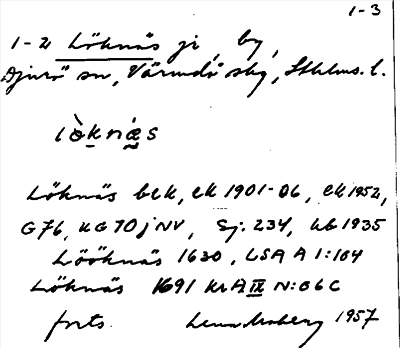 1-3
1-2 Löknäs ji, by,
Djurö sn, Värmdö skg, Sthlms. l.
lòknä́s
Löknäs bek, ek 1901-06, ek 1952,
G76, KG 70 j NV, Sj. 234, hb 1935
Lööknäs 1630, LSA A 1:104
Löknäs 1691 Kr A IX N:o 6 C
forts. 1957